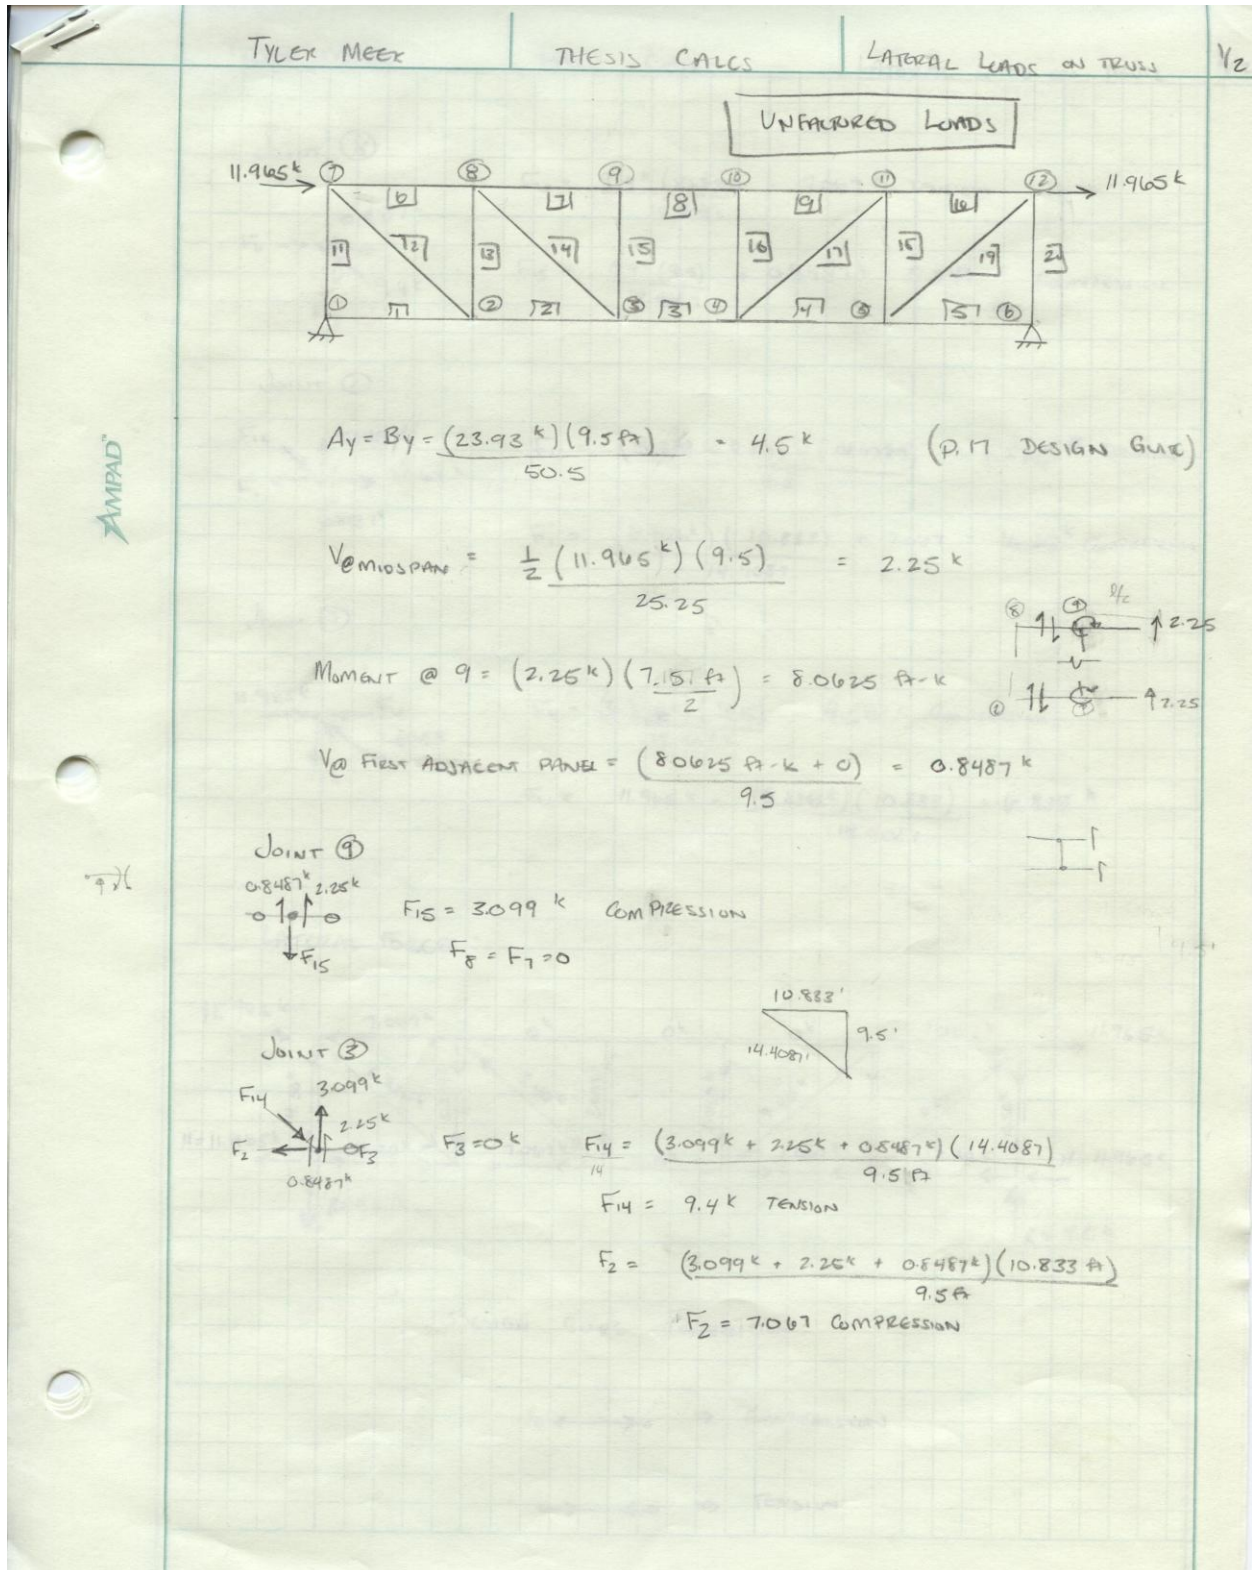 TYLER MEEK THESIS CALCS LATERAL LOADS ON TRUSS 1/2
UNFACTORED LOADS
11.965k ⑦ ⑧ ⑨ ⑩ ⑪ ⑫ 11.965k
6 7 8 9 10
11 12 13 14 15 16 17 18 19 20
① 1 ② 2 ③ 3 ④ 4 ⑤ 5 ⑥
AMPAD™
Ay = By = (23.93 k)(9.5 ft) / 50.5 = 4.5 k (P. 17 DESIGN GUIDE)
V@MIDSPAN = 1/2 (11.965 k)(9.5) / 25.25 = 2.25 k
⑧ ⑨ l/2 2.25
MOMENT @ 9 = (2.25 k)(7.151 ft / 2) = 8.0625 ft-k
2.25
V@ FIRST ADJACENT PANEL = (8.0625 ft-k + 0) / 9.5 = 0.8487 k
JOINT ⑨
0.8487k 2.25k
F15 = 3.099 k COMPRESSION
F15
F8 = F7 = 0
10.833'
9.5'
14.4087'
JOINT ③
F14 3.099k
2.25k
F2 F3
0.8487k
F3 = 0 k F14 = (3.099k + 2.25k + 0.8487k)(14.4087) / 9.5 ft
14
F14 = 9.4 k TENSION
F2 = (3.099k + 2.25k + 0.8487k)(10.833 ft) / 9.5 ft
F2 = 7.067 COMPRESSION